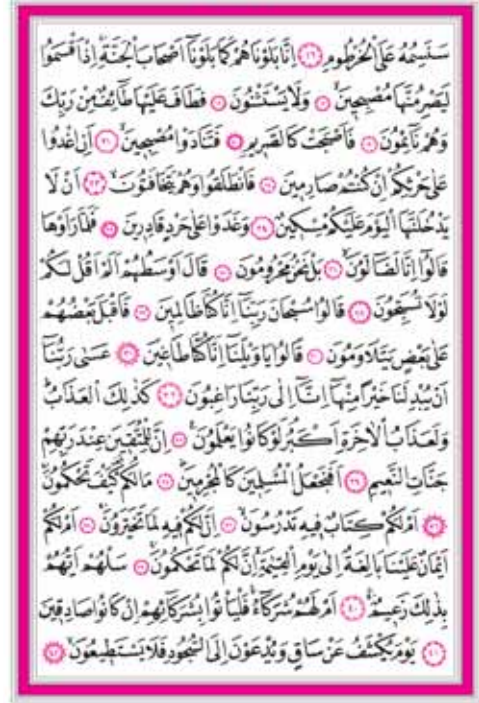 سَنَسِمُهُ عَلَى الْخُرْطُومِ ﴿١٦﴾ اِنَّا بَلَوْنَاهُمْ كَمَا بَلَوْنَٓا اَصْحَابَ الْجَنَّةِۚ اِذْ اَقْسَمُوا
لَيَصْرِمُنَّهَا مُصْبِح۪ينَۙ ﴿١٧﴾ وَلَا يَسْتَثْنُونَ ﴿١٨﴾ فَطَافَ عَلَيْهَا طَٓائِفٌ مِنْ رَبِّكَ
وَهُمْ نَٓائِمُونَ ﴿١٩﴾ فَاَصْبَحَتْ كَالصَّر۪يمِۙ ﴿٢٠﴾ فَتَنَادَوْا مُصْبِح۪ينَۙ ﴿٢١﴾ اَنِ اغْدُوا
عَلٰى حَرْثِكُمْ اِنْ كُنْتُمْ صَارِم۪ينَ ﴿٢٢﴾ فَانْطَلَقُوا وَهُمْ يَتَخَافَتُونَۙ ﴿٢٣﴾ اَنْ لَا
يَدْخُلَنَّهَا الْيَوْمَ عَلَيْكُمْ مِسْك۪ينٌۙ ﴿٢٤﴾ وَغَدَوْا عَلٰى حَرْدٍ قَادِر۪ينَ ﴿٢٥﴾ فَلَمَّا رَاَوْهَا
قَالُٓوا اِنَّا لَضَٓالُّونَۙ ﴿٢٦﴾ بَلْ نَحْنُ مَحْرُومُونَ ﴿٢٧﴾ قَالَ اَوْسَطُهُمْ اَلَمْ اَقُلْ لَكُمْ
لَوْلَا تُسَبِّحُونَ ﴿٢٨﴾ قَالُوا سُبْحَانَ رَبِّنَٓا اِنَّا كُنَّا ظَالِم۪ينَ ﴿٢٩﴾ فَاَقْبَلَ بَعْضُهُمْ
عَلٰى بَعْضٍ يَتَلَاوَمُونَ ﴿٣٠﴾ قَالُوا يَا وَيْلَنَٓا اِنَّا كُنَّا طَاغ۪ينَ ﴿٣١﴾ عَسٰى رَبُّنَٓا
اَنْ يُبْدِلَنَا خَيْرًا مِنْهَٓا اِنَّٓا اِلٰى رَبِّنَا رَاغِبُونَ ﴿٣٢﴾ كَذٰلِكَ الْعَذَابُۜ
وَلَعَذَابُ الْاٰخِرَةِ اَكْبَرُۢ لَوْ كَانُوا يَعْلَمُونَ۟ ﴿٣٣﴾ اِنَّ لِلْمُتَّق۪ينَ عِنْدَ رَبِّهِمْ
جَنَّاتِ النَّع۪يمِ ﴿٣٤﴾ اَفَنَجْعَلُ الْمُسْلِم۪ينَ كَالْمُجْرِم۪ينَۜ ﴿٣٥﴾ مَا لَكُمْ۠ كَيْفَ تَحْكُمُونَۚ
﴿٣٦﴾ اَمْ لَكُمْ كِتَابٌ ف۪يهِ تَدْرُسُونَۙ ﴿٣٧﴾ اِنَّ لَكُمْ ف۪يهِ لَمَا تَخَيَّرُونَۚ ﴿٣٨﴾ اَمْ لَكُمْ
اَيْمَانٌ عَلَيْنَا بَالِغَةٌ اِلٰى يَوْمِ الْقِيٰمَةِۙ اِنَّ لَكُمْ لَمَا تَحْكُمُونَۚ ﴿٣٩﴾ سَلْهُمْ اَيُّهُمْ
بِذٰلِكَ زَع۪يمٌۚۛ ﴿٤٠﴾ اَمْ لَهُمْ شُرَكَٓاءُۚۛ فَلْيَأْتُوا بِشُرَكَٓائِهِمْ اِنْ كَانُوا صَادِق۪ينَ
﴿٤١﴾ يَوْمَ يُكْشَفُ عَنْ سَاقٍ وَيُدْعَوْنَ اِلَى السُّجُودِ فَلَا يَسْتَط۪يعُونَۙ ﴿٤٢﴾